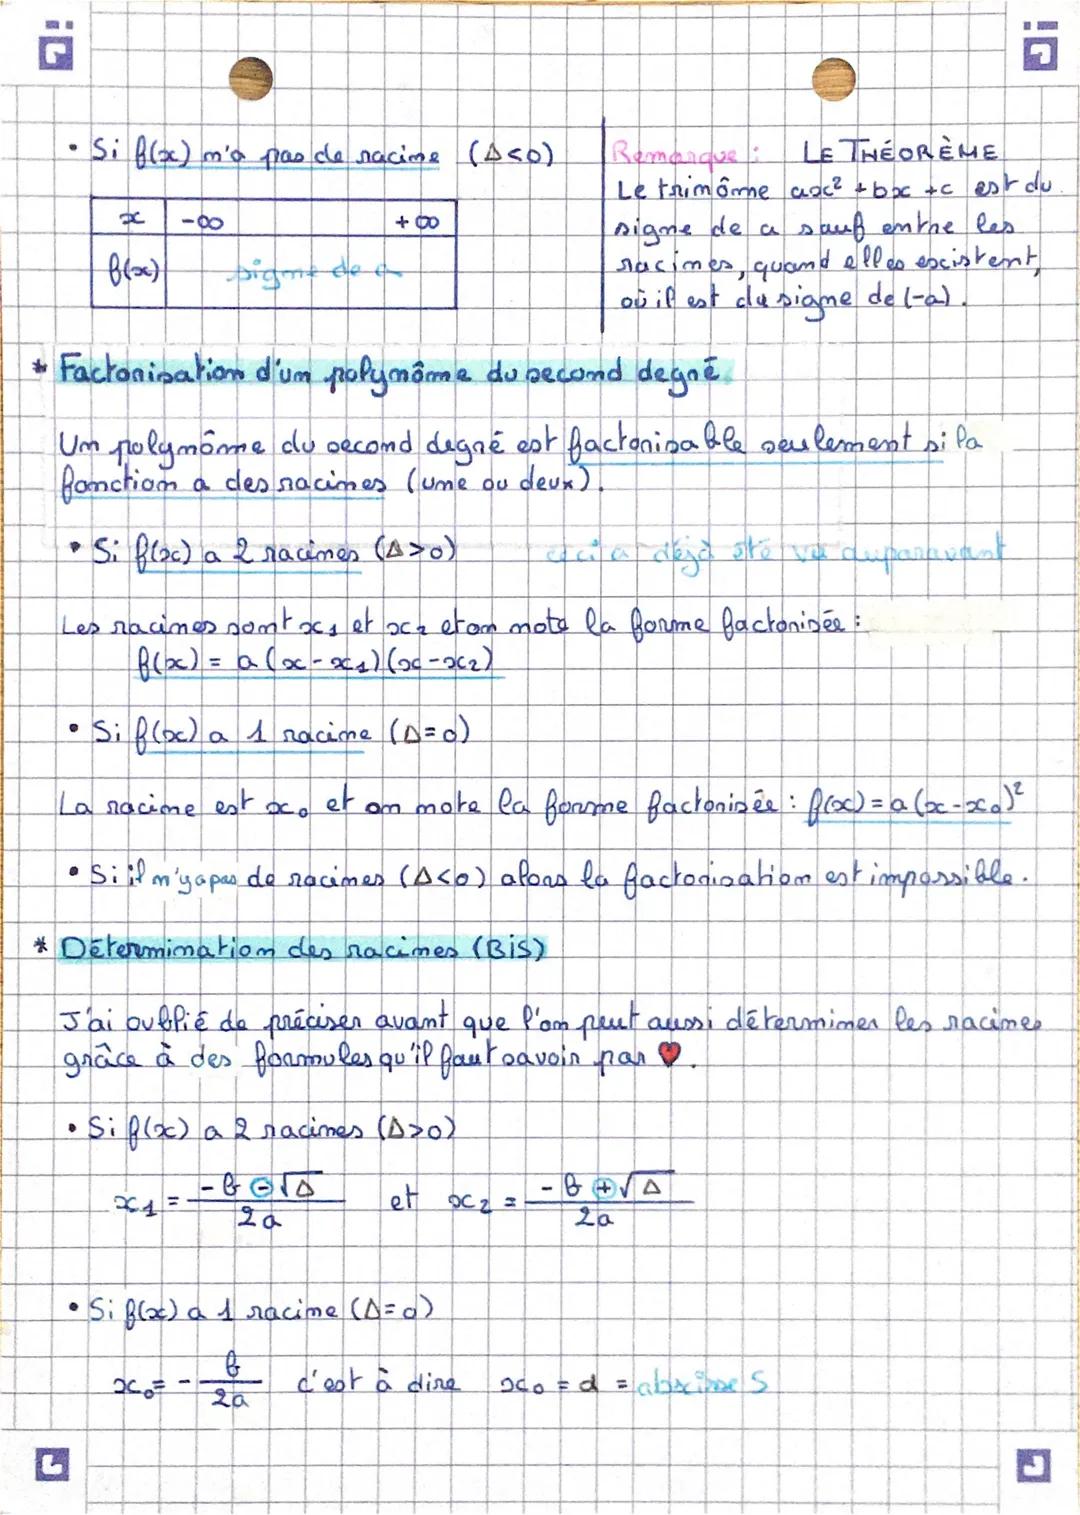 • Si f(x) n'a pas de racine (Δ<0)
x -∞ +∞
f(x) signe de a
Remarque : LE THÉORÈME
Le trinôme ax² + bx + c est du
signe de a sauf entre les
racines, quand elles existent,
où il est du signe de (-a).
* Factorisation d'un polynôme du second degré
Un polynôme du second degré est factorisable seulement si la
fonction a des racines (une ou deux).
• Si f(x) a 2 racines (Δ>0) ceci a déjà été vu auparavant
Les racines sont x₁ et x₂ et on note la forme factorisée :
f(x) = a (x-x₁)(x-x₂)
• Si f(x) a 1 racine (Δ=0)
La racine est x₀ et on note la forme factorisée : f(x) = a (x-x₀)²
• Si il n'y a pas de racines (Δ<0) alors la factorisation est impossible.
* Détermination des racines (Bis)
J'ai oublié de préciser avant que l'on peut aussi déterminer les racines
grâce à des formules qu'il faut savoir par ♥.
• Si f(x) a 2 racines (Δ>0)
x₁ = (-b ⊖ √Δ) / 2a et x₂ = (-b ⊕ √Δ) / 2a
• Si f(x) a 1 racine (Δ=0)
x₀ = - b / 2a c'est à dire x₀ = α = abscisse S